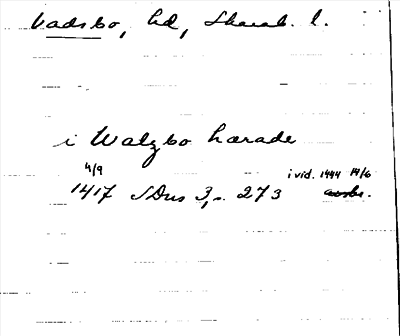 Vadsbo, hd, Skarab. l.
i Walzbo hærade
4/9 i vid. 1444 14/6
1417 SDns 3, s. 273 avskr.